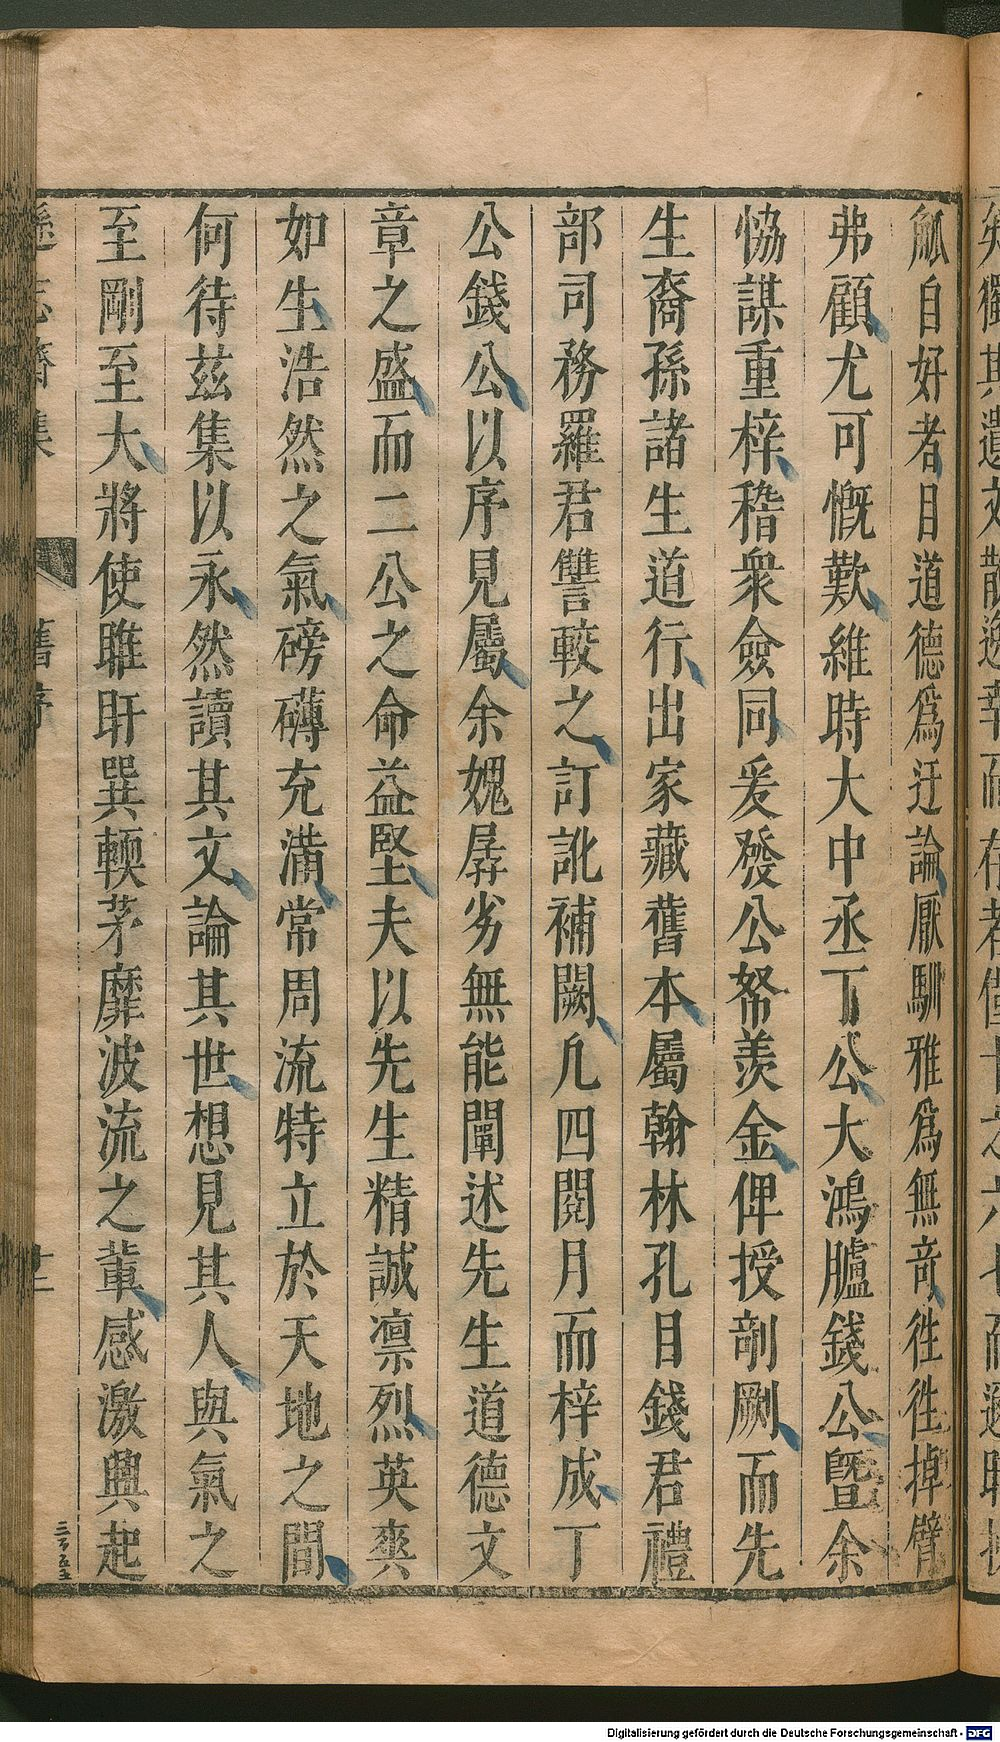 觚自好者目道德爲迂論厭馴雅爲無奇徃徃掉臂
弗顧尤可慨歎維時大中丞丁公大鴻臚錢公暨余
恊謀重梓稽衆僉同爰發公帑羡金俾授剞劂而先
生裔孫諸生道行出家藏舊本屬翰林孔目錢君禮
部司務羅君讐較之訂訛補闕凢四閱月而梓成丁
公錢公以序見屬余媿孱劣無能闡述先生道德文
章之盛而二公之命益堅夫以先生精誠凛烈英爽
如生浩然之氣磅礴充滿常周流特立於天地之間
何待茲集以永然讀其文論其世想見其人與氣之
至剛至大將使睢盱巽輭茅靡波流之輩感激興起
遜志齋集
舊序
十二
Digitalisierung gefördert durch die Deutsche Forschungsgemeinschaft - DFG